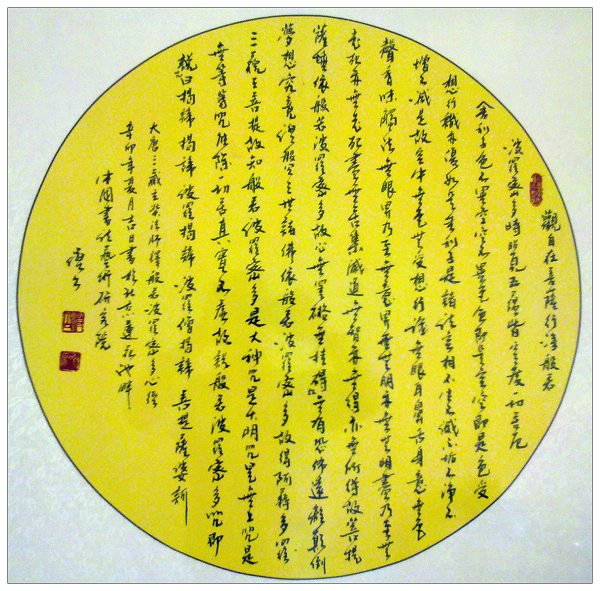 觀自在菩薩行深般若
波羅蜜多時照見五蘊皆空度一切苦厄
舍利子色不異空空不異色色即是空空即是色受
想行識亦復如是舍利子是諸法空相不生不滅不垢不淨不
增不減是故空中無色無受想行識無眼耳鼻舌身意無色
聲香味觸法無眼界乃至無意識界無無明亦無無明盡乃至無
老死亦無老死盡無苦集滅道無智亦無得以無所得故菩提
薩埵依般若波羅蜜多故心無罣礙無挂碍無有恐怖遠離顛倒
夢想究竟涅槃三世諸佛依般若波羅蜜多故得阿耨多羅
三藐三菩提故知般若波羅蜜多是大神咒是大明咒是無上咒是
無等等咒能除一切苦真實不虛故說般若波羅蜜多咒即
說曰揭諦揭諦波羅揭諦波羅僧揭諦菩提薩婆訶
大唐三藏玄奘法師譯般若波羅蜜多心經
辛卯年夏月吉日書於北京蓮花池畔
中國書法藝術研究院